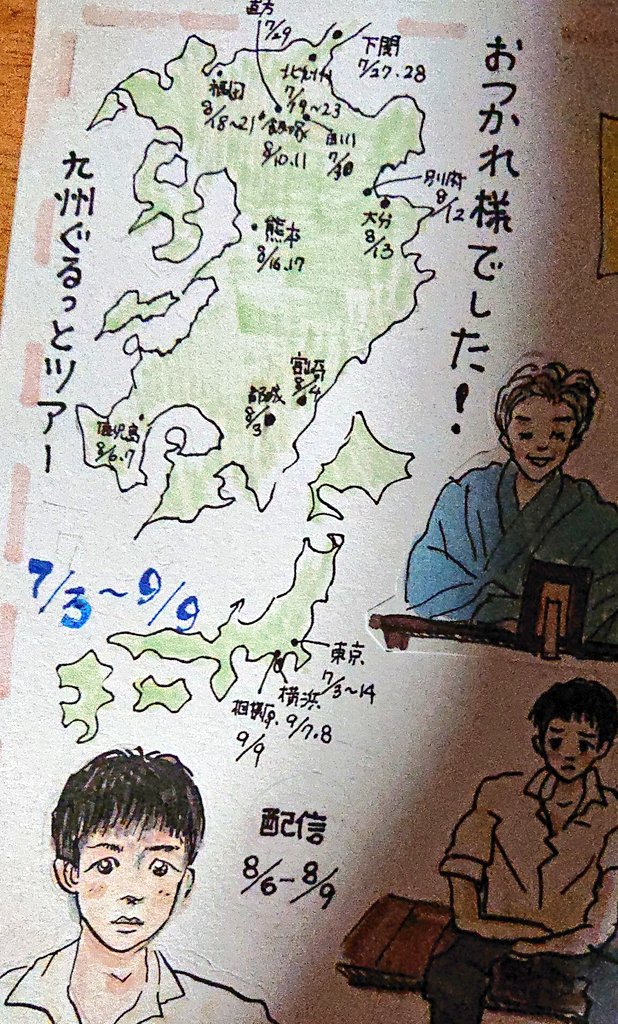 おつかれ様でした!
九州ぐるっとツアー
直方
7/29
下関
7/27.28
北九州
7/19~23
福岡
8/18~21
飯塚
8/10.11
田川
別府
8/12
大分
8/13
熊本
8/16.17
宮崎
8/4
都城
8/3
鹿児島
8/6.7
7/3~9/9
東京
7/3~14
横浜
9/7.8
相模原
9/9
配信
8/6-8/9